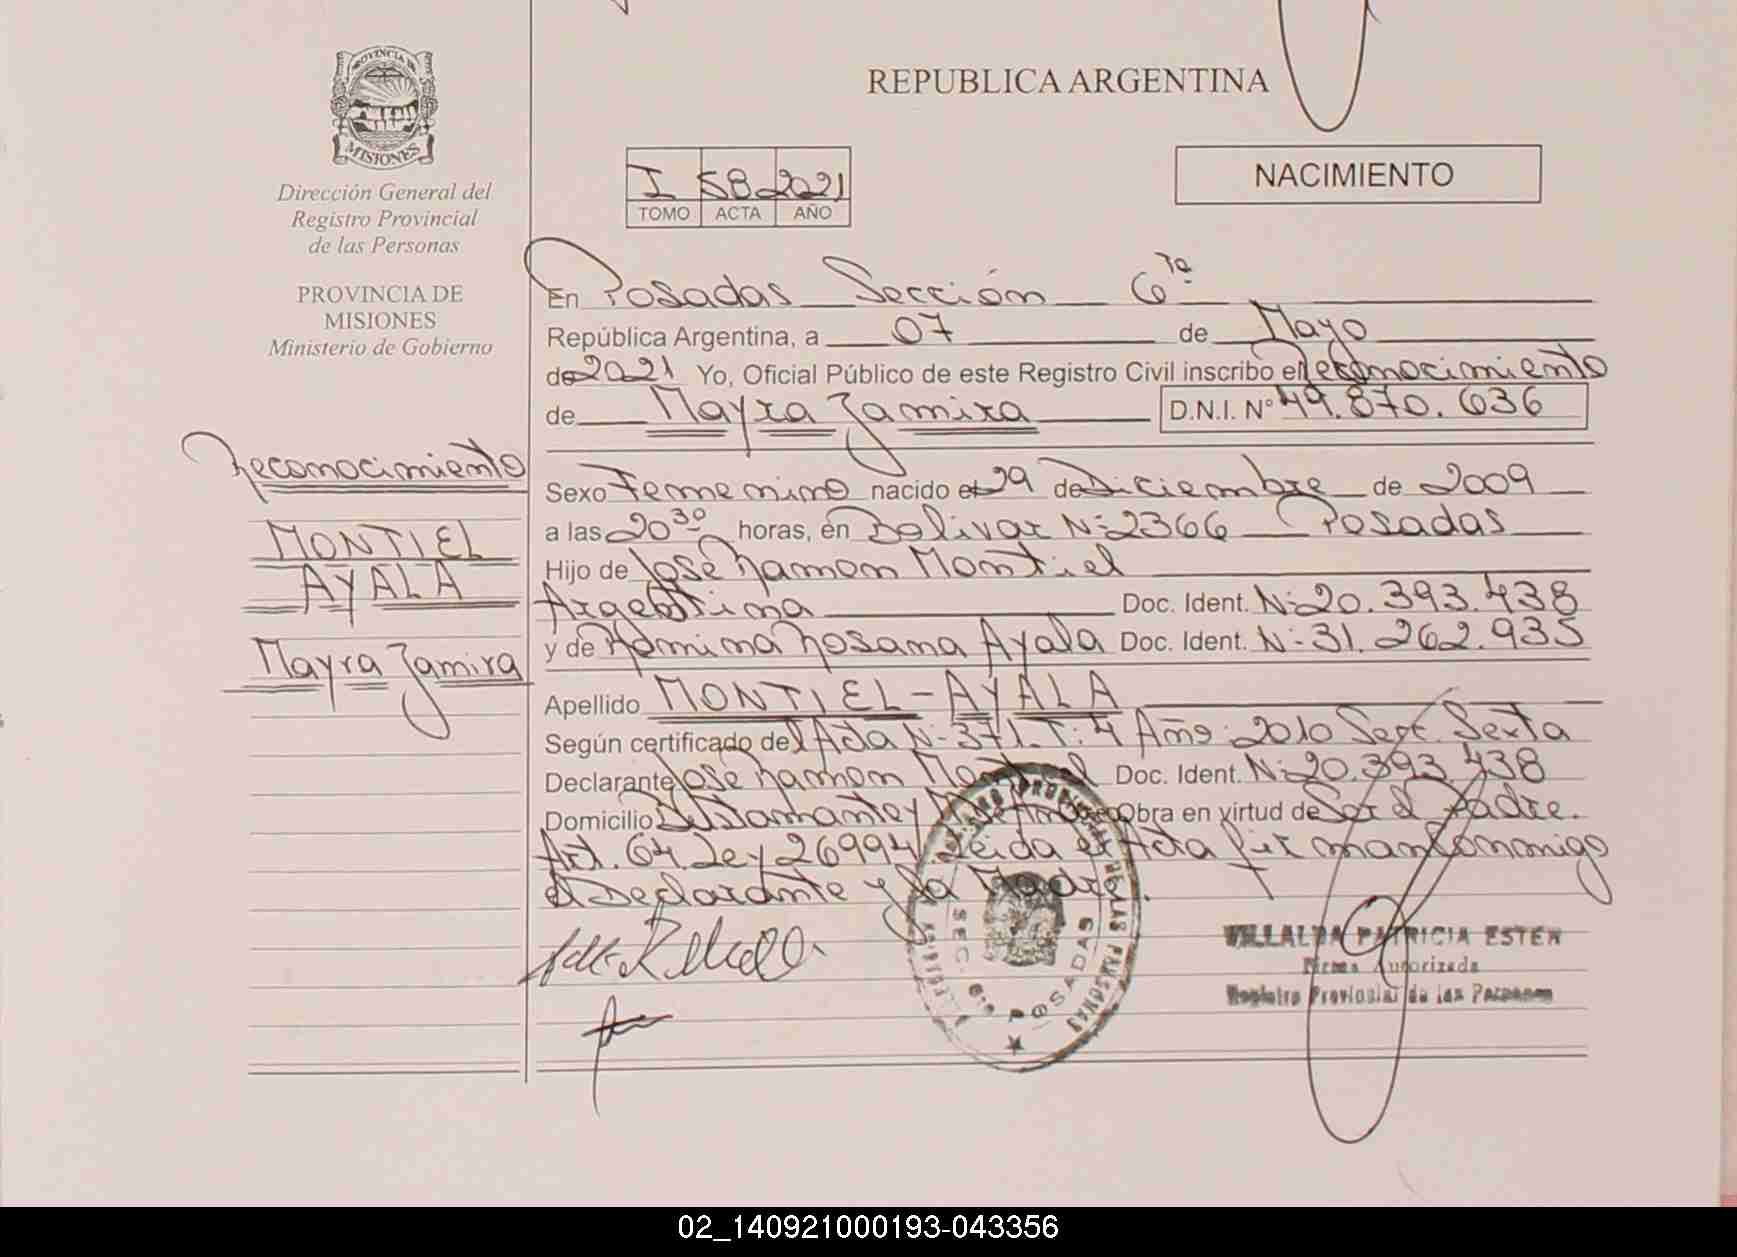 REPUBLICA ARGENTINA
PROVINCIA DE
MISIONES
Dirección General del
Registro Provincial
de las Personas
PROVINCIA DE
MISIONES
Ministerio de Gobierno
I 58 2021
TOMO ACTA AÑO
NACIMIENTO
En Posadas Sección 6ta
República Argentina, a 07 de Mayo
de 2021 Yo, Oficial Público de este Registro Civil inscribo el reconocimiento
de Mayra Zamira D.N.I. N° 49.870.636
Reconocimiento
MONTIEL
AYALA
Mayra Zamira
Sexo Femenino nacido el 29 de Diciembre de 2009
a las 20 30 horas, en Bolivar N° 2366 Posadas
Hijo de José Ramon Montiel
Argentina Doc. Ident. N° 20.393.438
y de Romina Rosana Ayala Doc. Ident. N° 31.262.935
Apellido MONTIEL - AYALA
Según certificado del Acta N° 371. T: 4 Año: 2010 Secc. Sexta
Declarante José Ramon Montiel Doc. Ident. N° 20.393.438
Domicilio Bustamante y Obra en virtud de Ser el Padre.
Art. 64 Ley 26994 Leida el Acta firman conmigo
el Declarante y la Madre.
REGISTRO PROVINCIAL DE LAS PERSONAS
SEC. 6ta
POSADAS
VILLALDA PATRICIA ESTER
Firma Autorizada
Registro Provincial de las Personas
02_140921000193-043356